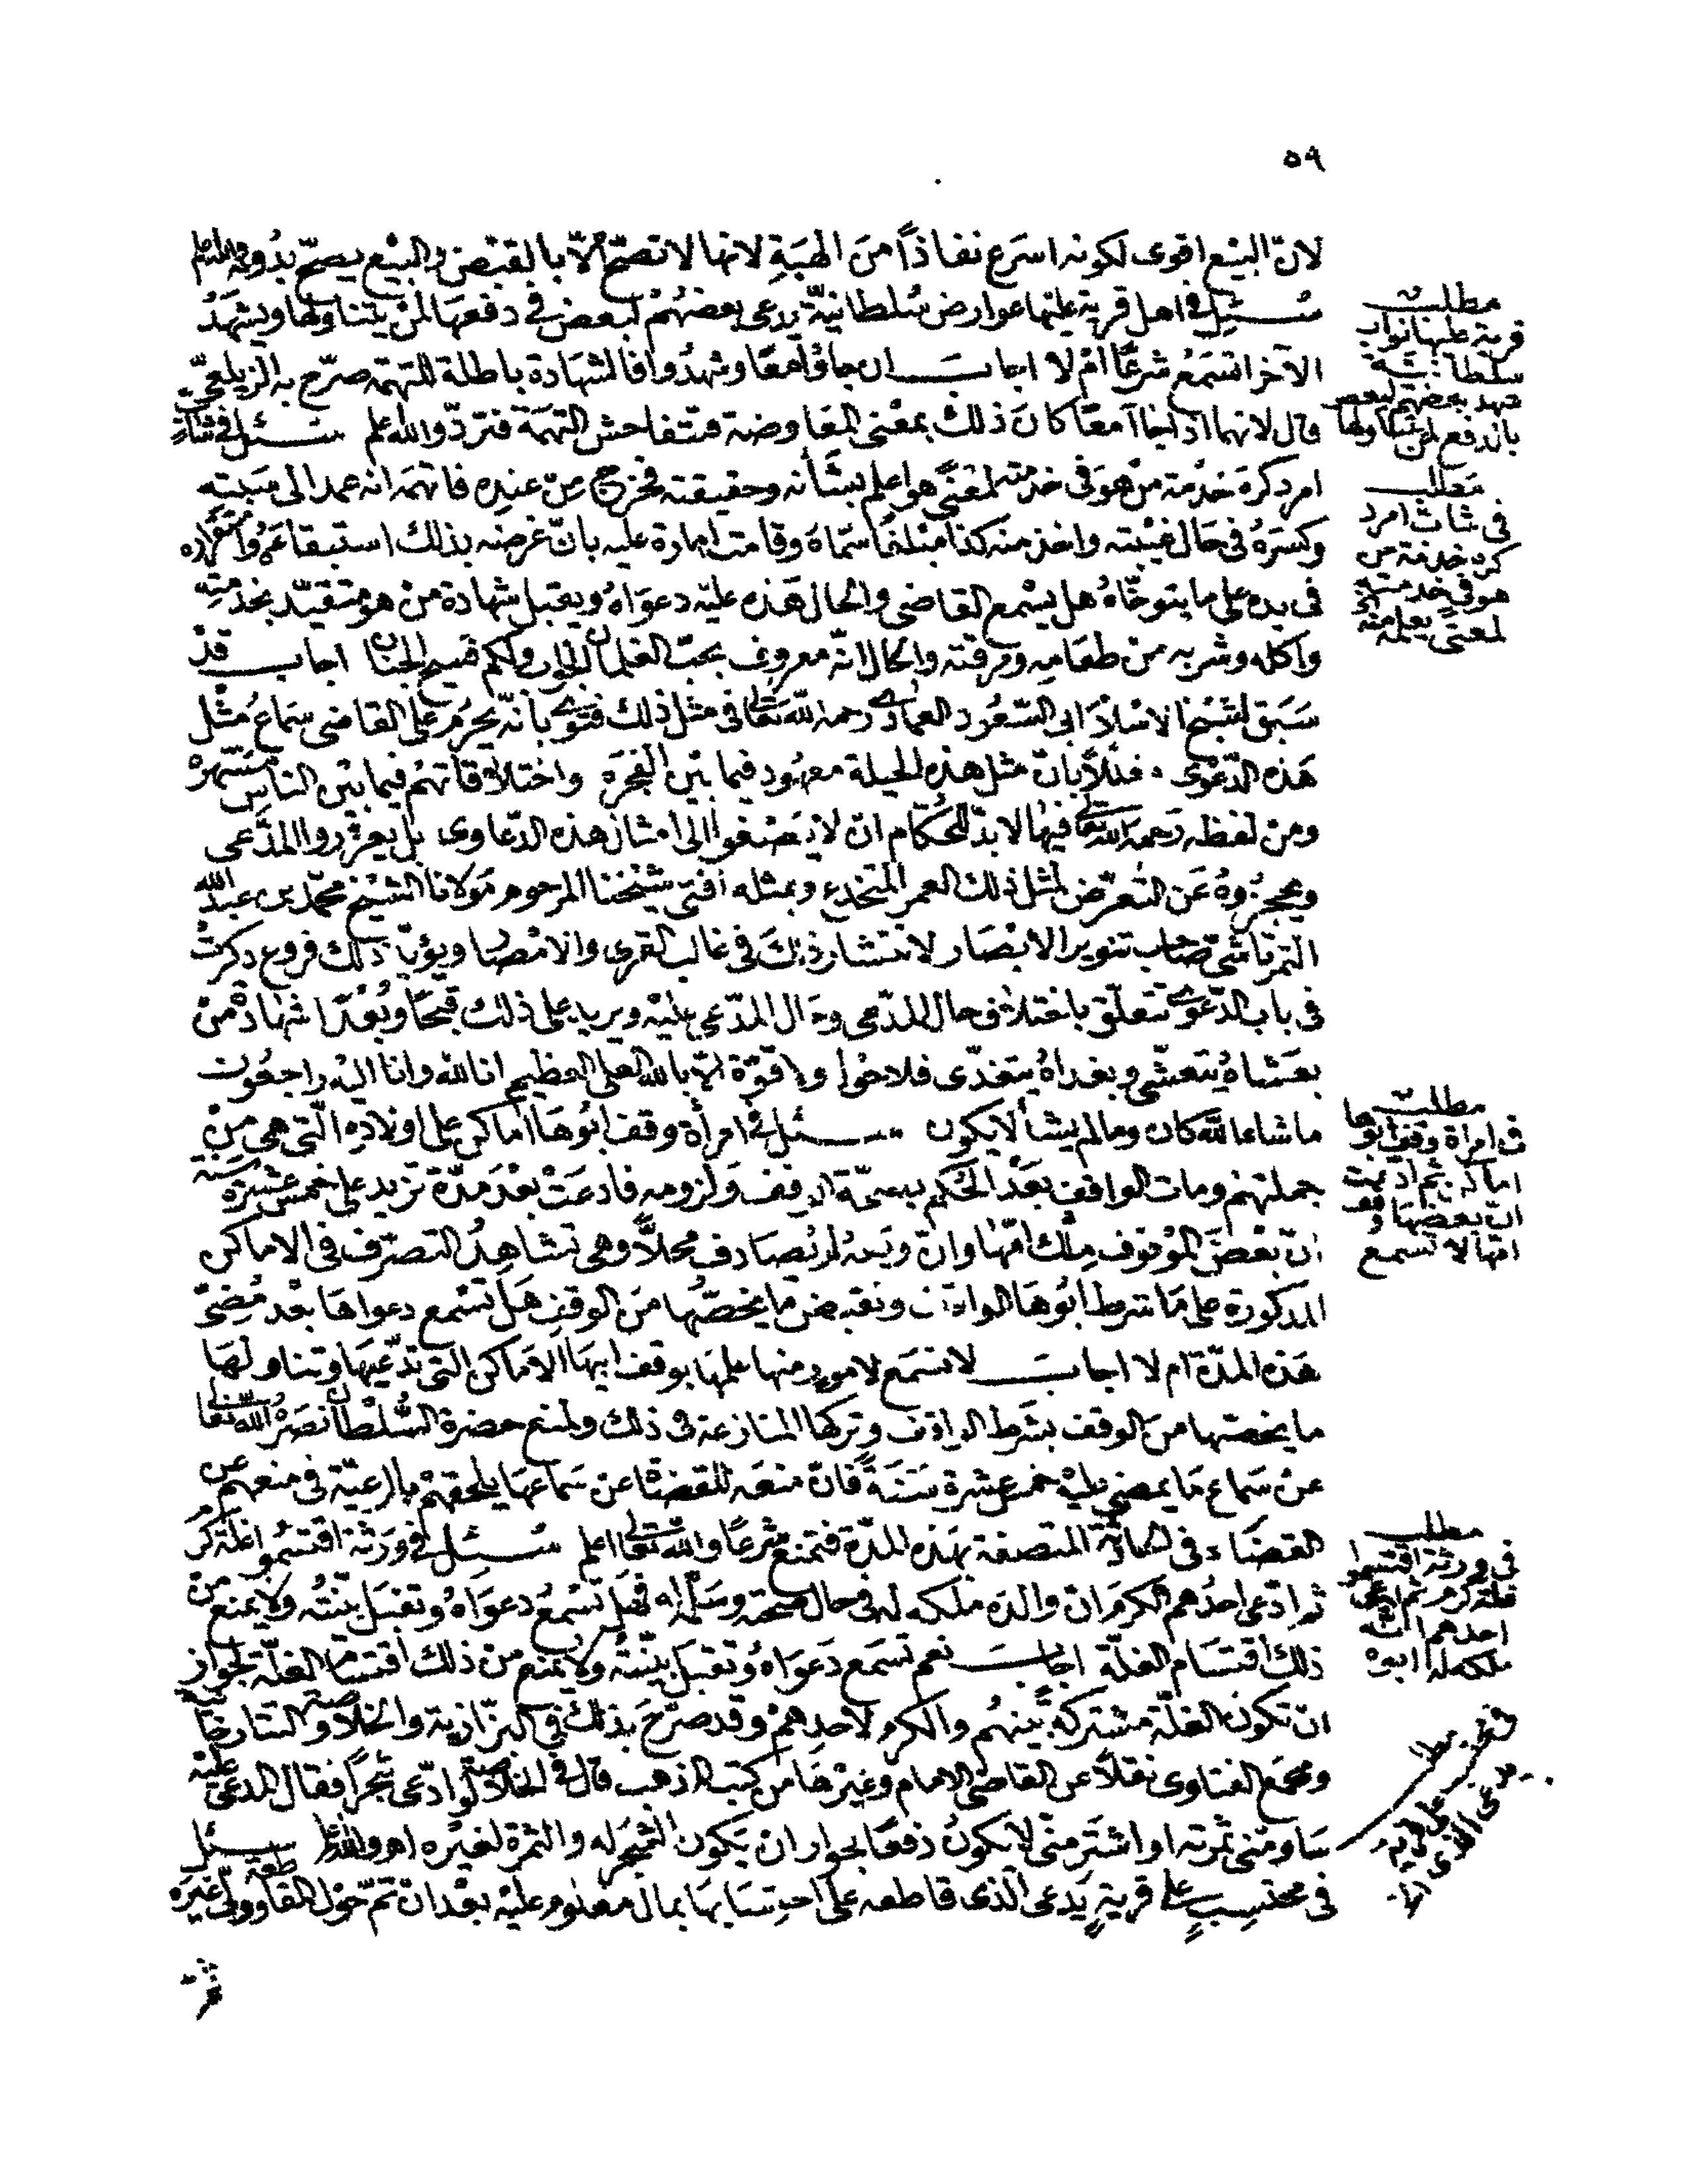 ٥٩
لان البيع اقوى لكونه اسرع نفاذًا من الهبة لانها لا تصح الّا بالقبض والبيع يصح بدونه والله اعلم
سئل في اهل قرية عليها عوارض سلطانية يدعى بعضهم لبعض في دفعها لمن يتناولها ويشهد
الآخر اتسمع شرعًا ام لا اجاب ان جاؤا معًا وشهدوا فالشهادة باطلة للتهمة صرّح به الزيلعي
قال لانهما اذا جاآ معًا كان ذلك بمعنى المعاوضة فتتفاحش التهمة فتردّ والله اعلم سئل في شاب
امرد كره خدمة من هو في خدمته لمعنى هو اعلم بشأنه وحقيقته فخرج من عنده فاتهمه انه عمد الى مبيته
وكسره في حال غيبته واخذ منه كذا مبلغًا سمّاه وقامت امارة عليه بانّ غرضه بذلك استبقاءه واستقراره
في يده على ما يتوخّاه هل يسمع القاضي والحال هذه عليه دعواه ويقبل شهادة من هو متقيّد بخدمته
واكله وشربه من طعامه ومرقته والحال انّه معروف بحبّ الغلمان الجواب ولكم فسيح الجنان اجاب قد
سبق لشيخ الاسلام ابى السعود العمادى رحمه الله تعالى في مثل ذلك فتوى بانّه يحرم على القاضي سماع مثل
هذه الدعوى معللًا بانّ مثل هذه الحيلة معهود فيما بين الفجرة واختلاقاتهم فيما بين الناس مشتهرة
ومن لفظه رحمه الله تعالى فيها لا بدّ للحكّام ان لا يصغوا الى امثال هذه الدعاوى بل يعزروا المدّعى
ويحجزوه عن التعرّض لمثل ذلك الغمر المنخدع وبمثله أفتى شيخنا المرحوم مولانا الشيخ محمّد بن عبد الله
التمرتاشي صاحب تنوير الابصار لانتشار ذلك في غالب القرى والامصار ويؤيّد ذلك فروع ذكرت
في باب الدعوى تتعلّق باختلاف حال المدّعى وحال المدّعى عليه ويريد على ذلك قبحًا وبعدًا شهادة من
بعشاه يتعشى وبغداه يتغدى فلا حول ولا قوّة الّا بالله العلى العظيم انا لله وانا اليه راجعون
ما شاء الله كان وما لم يشأ لا يكون سئل في امرأة وقف ابوها أماكن على اولاده التي هي من
جملتهم ومات الواقف بعد الحكم بصحّة الوقف ولزومه فادعت بعد مدّة تزيد على خمس عشرة سنة
انّ بعض الموقوف ملك امّها وانّ وقفه لم يصادف محلًّا وهي تشاهد التصرّف في الاماكن
المذكورة على ما شرط ابوها الواقف وتقبض ما يخصّها من الوقف هل تسمع دعواها بعد مضيّ
هذه المدّة ام لا اجاب لا تسمع لامور منها علمها بوقف ابيها الاماكن التي تدّعيها وتناولها
ما يخصّها من الوقف بشرط الواقف وتركها المنازعة في ذلك ولمنع حضرة السّلطان نصره الله تعالى
عن سماع ما يمضى عليه خمس عشرة سنة فانّ منعه للقضاة عن سماعها يلحقهم بالرعيّة في منعهم عن
القضاء في الحادثة المتصفة بهذه المدّة فتمنع شرعًا والله تعالى اعلم سئل في ورثة اقتسموا غلة كرم
ثم ادّعى احدهم الكرم ان والده ملكه له في حال صحته وسلّمه له فهل تسمع دعواه وتقبل بيّنته ولا يمنع من
ذلك اقتسام الغلّة اجاب نعم تسمع دعواه وتقبل بيّنته ولا يمنع من ذلك اقتسام الغلّة لجواز
ان تكون الغلّة مشتركة بينهم والكرم لاحدهم وقد صرّح بذلك في البزّازية والخلاصة والتتارخانية
ومجمع الفتاوى نقلًا عن القاضي الامام وغيرها من كتب المذهب قال في الخلاصة لو ادّعى شجرًا فقال المدعى عليه
ساومنى ثمرته او اشتر منّى لا يكون دفعًا لجواز ان يكون الشجر له والثمرة لغيره اهـ والله اعلم سئل
في محتسب على قرية يدعى الذى قاطعه على احتسابها بمال معلوم عليه بعد ان تمّ حول المقاطعة وولّى غيره
مطلب
قرية عليها نوائب
سلطانية
شهد بعضهم لبعض
بان دفع لمن يتناولها
مطلب
في شاب امرد
كره خدمة من
هو في خدمته
لمعنى يعلمه منه
مطلب
في امرأة وقف ابوها
اماكن ثم ادعت
ان بعضها وقف
امها لا تسمع
مطلب
في ورثة اقتسموا
غلة كرم ثم ادعى
احدهم انه
ملكه له ابوه